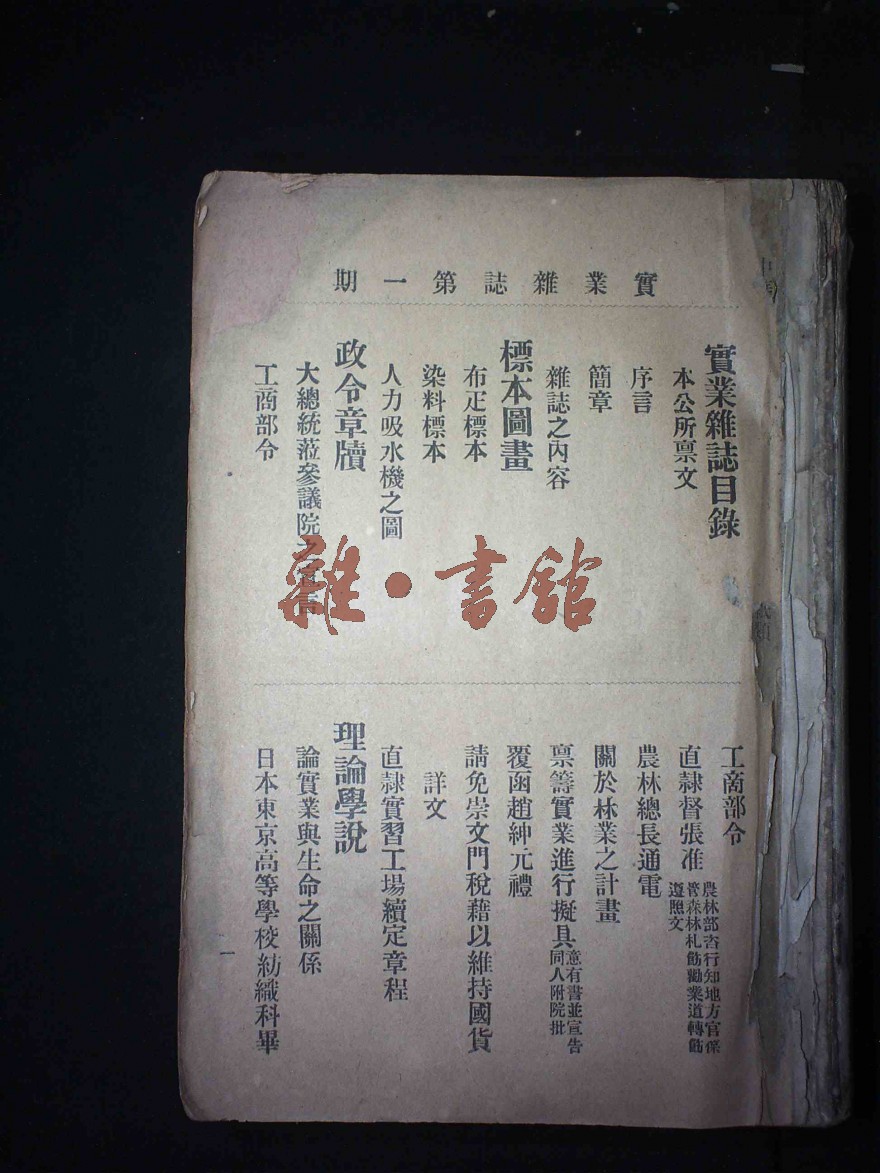 實業雜誌第一期
實業雜誌目錄
本公所禀文
序言
簡章
雜誌之內容
標本圖畫
布疋標本
染料標本
人力吸水機之圖
政令章牘
大總統蒞參議院之宣言
工商部令
工商部令
直隸督張准農林部咨行知地方官保管森林札飭勸業道轉飭遵照文
農林總長通電
關於林業之計畫
禀籌實業進行擬具意有書並宣告同人附院批
覆函趙紳元禮
請免崇文門稅藉以維持國貨
詳文
直隸實習工場續定章程
理論學說
論實業與生命之關係
日本東京高等學校紡織科畢
一
雜·書舘